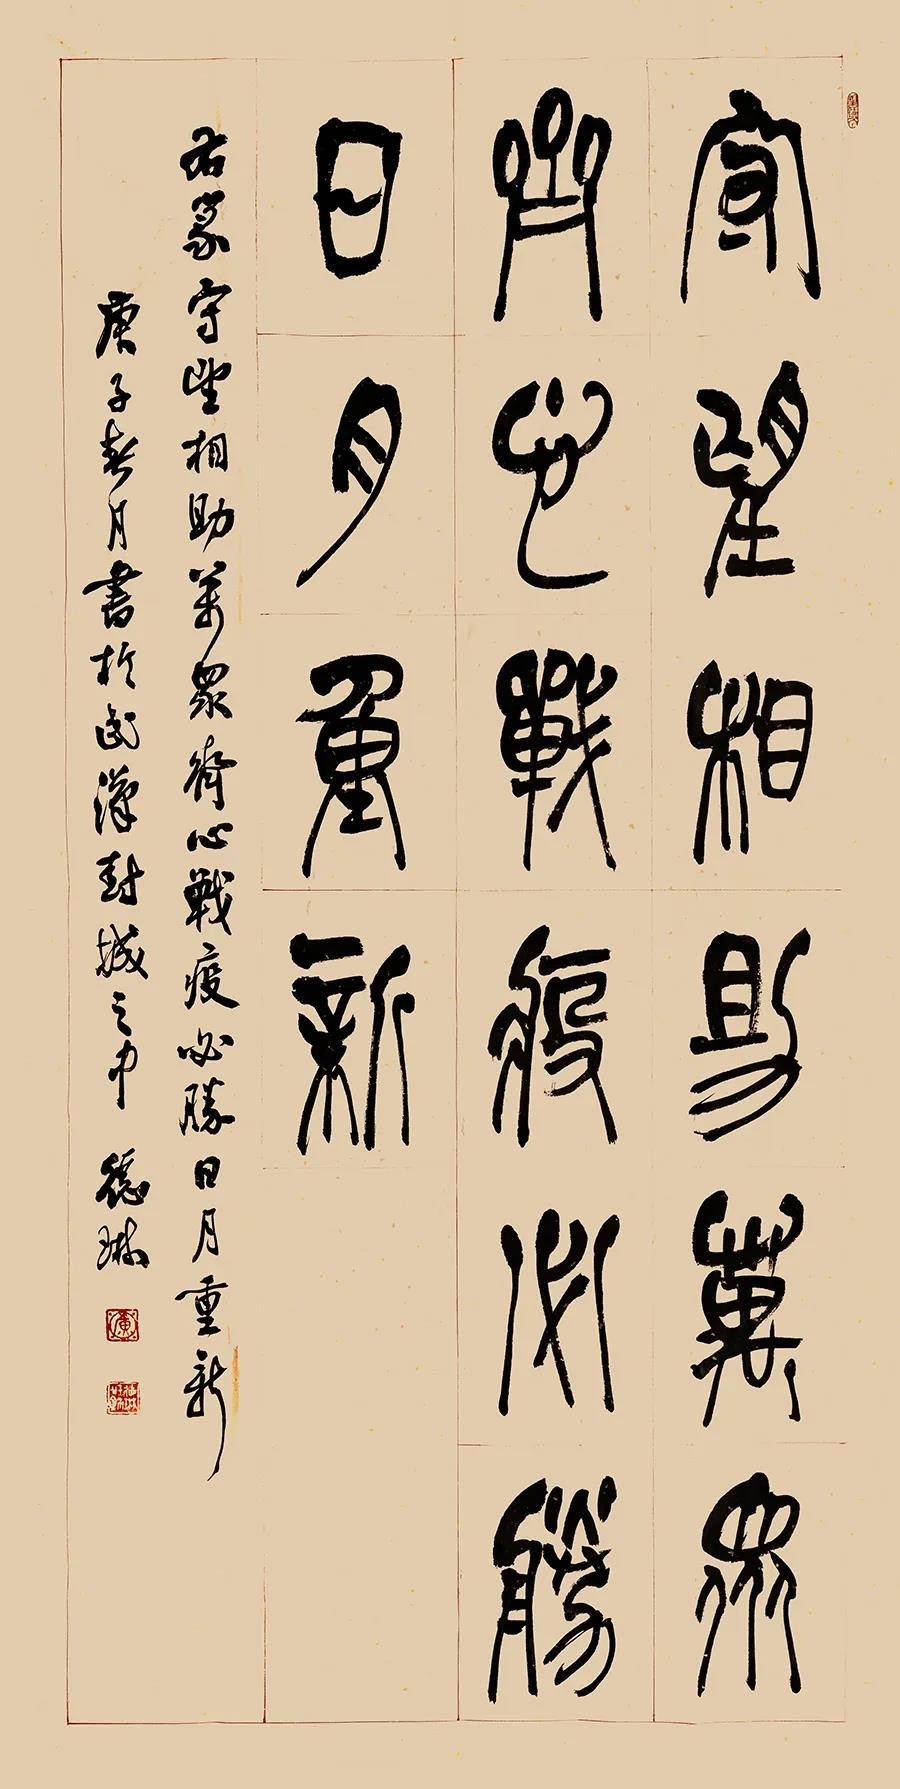 守望相助萬衆
齊心戰疫必勝
日月重新
右篆守望相助萬衆齊心戰疫必勝日月重新
庚子春月書於武漢封城之中 德琳